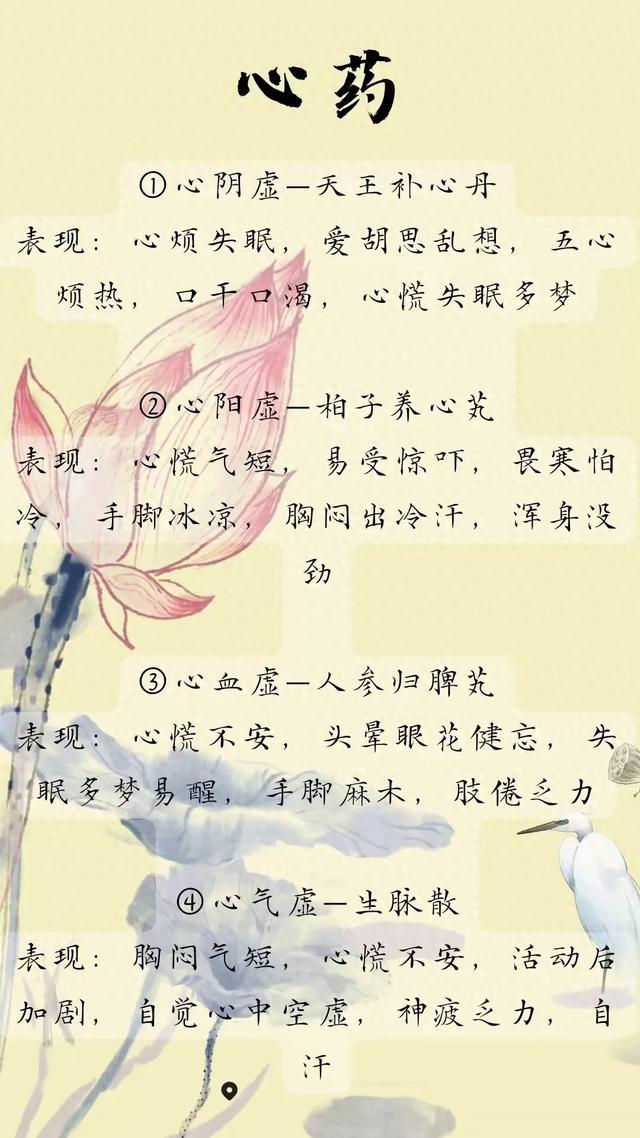 心药
①心阴虚—天王补心丹
表现：心烦失眠，爱胡思乱想，五心
烦热，口干口渴，心慌失眠多梦
②心阳虚—柏子养心艽
表现：心慌气短，易受惊吓，畏寒怕
冷，手脚冰凉，胸闷出冷汗，浑身没
劲
③心血虚—人参归脾艽
表现：心慌不安，头晕眼花健忘，失
眠多梦易醒，手脚麻木，肢倦乏力
④心气虚—生脉散
表现：胸闷气短，心慌不安，活动后
加剧，自觉心中空虚，神疲乏力，自
汗